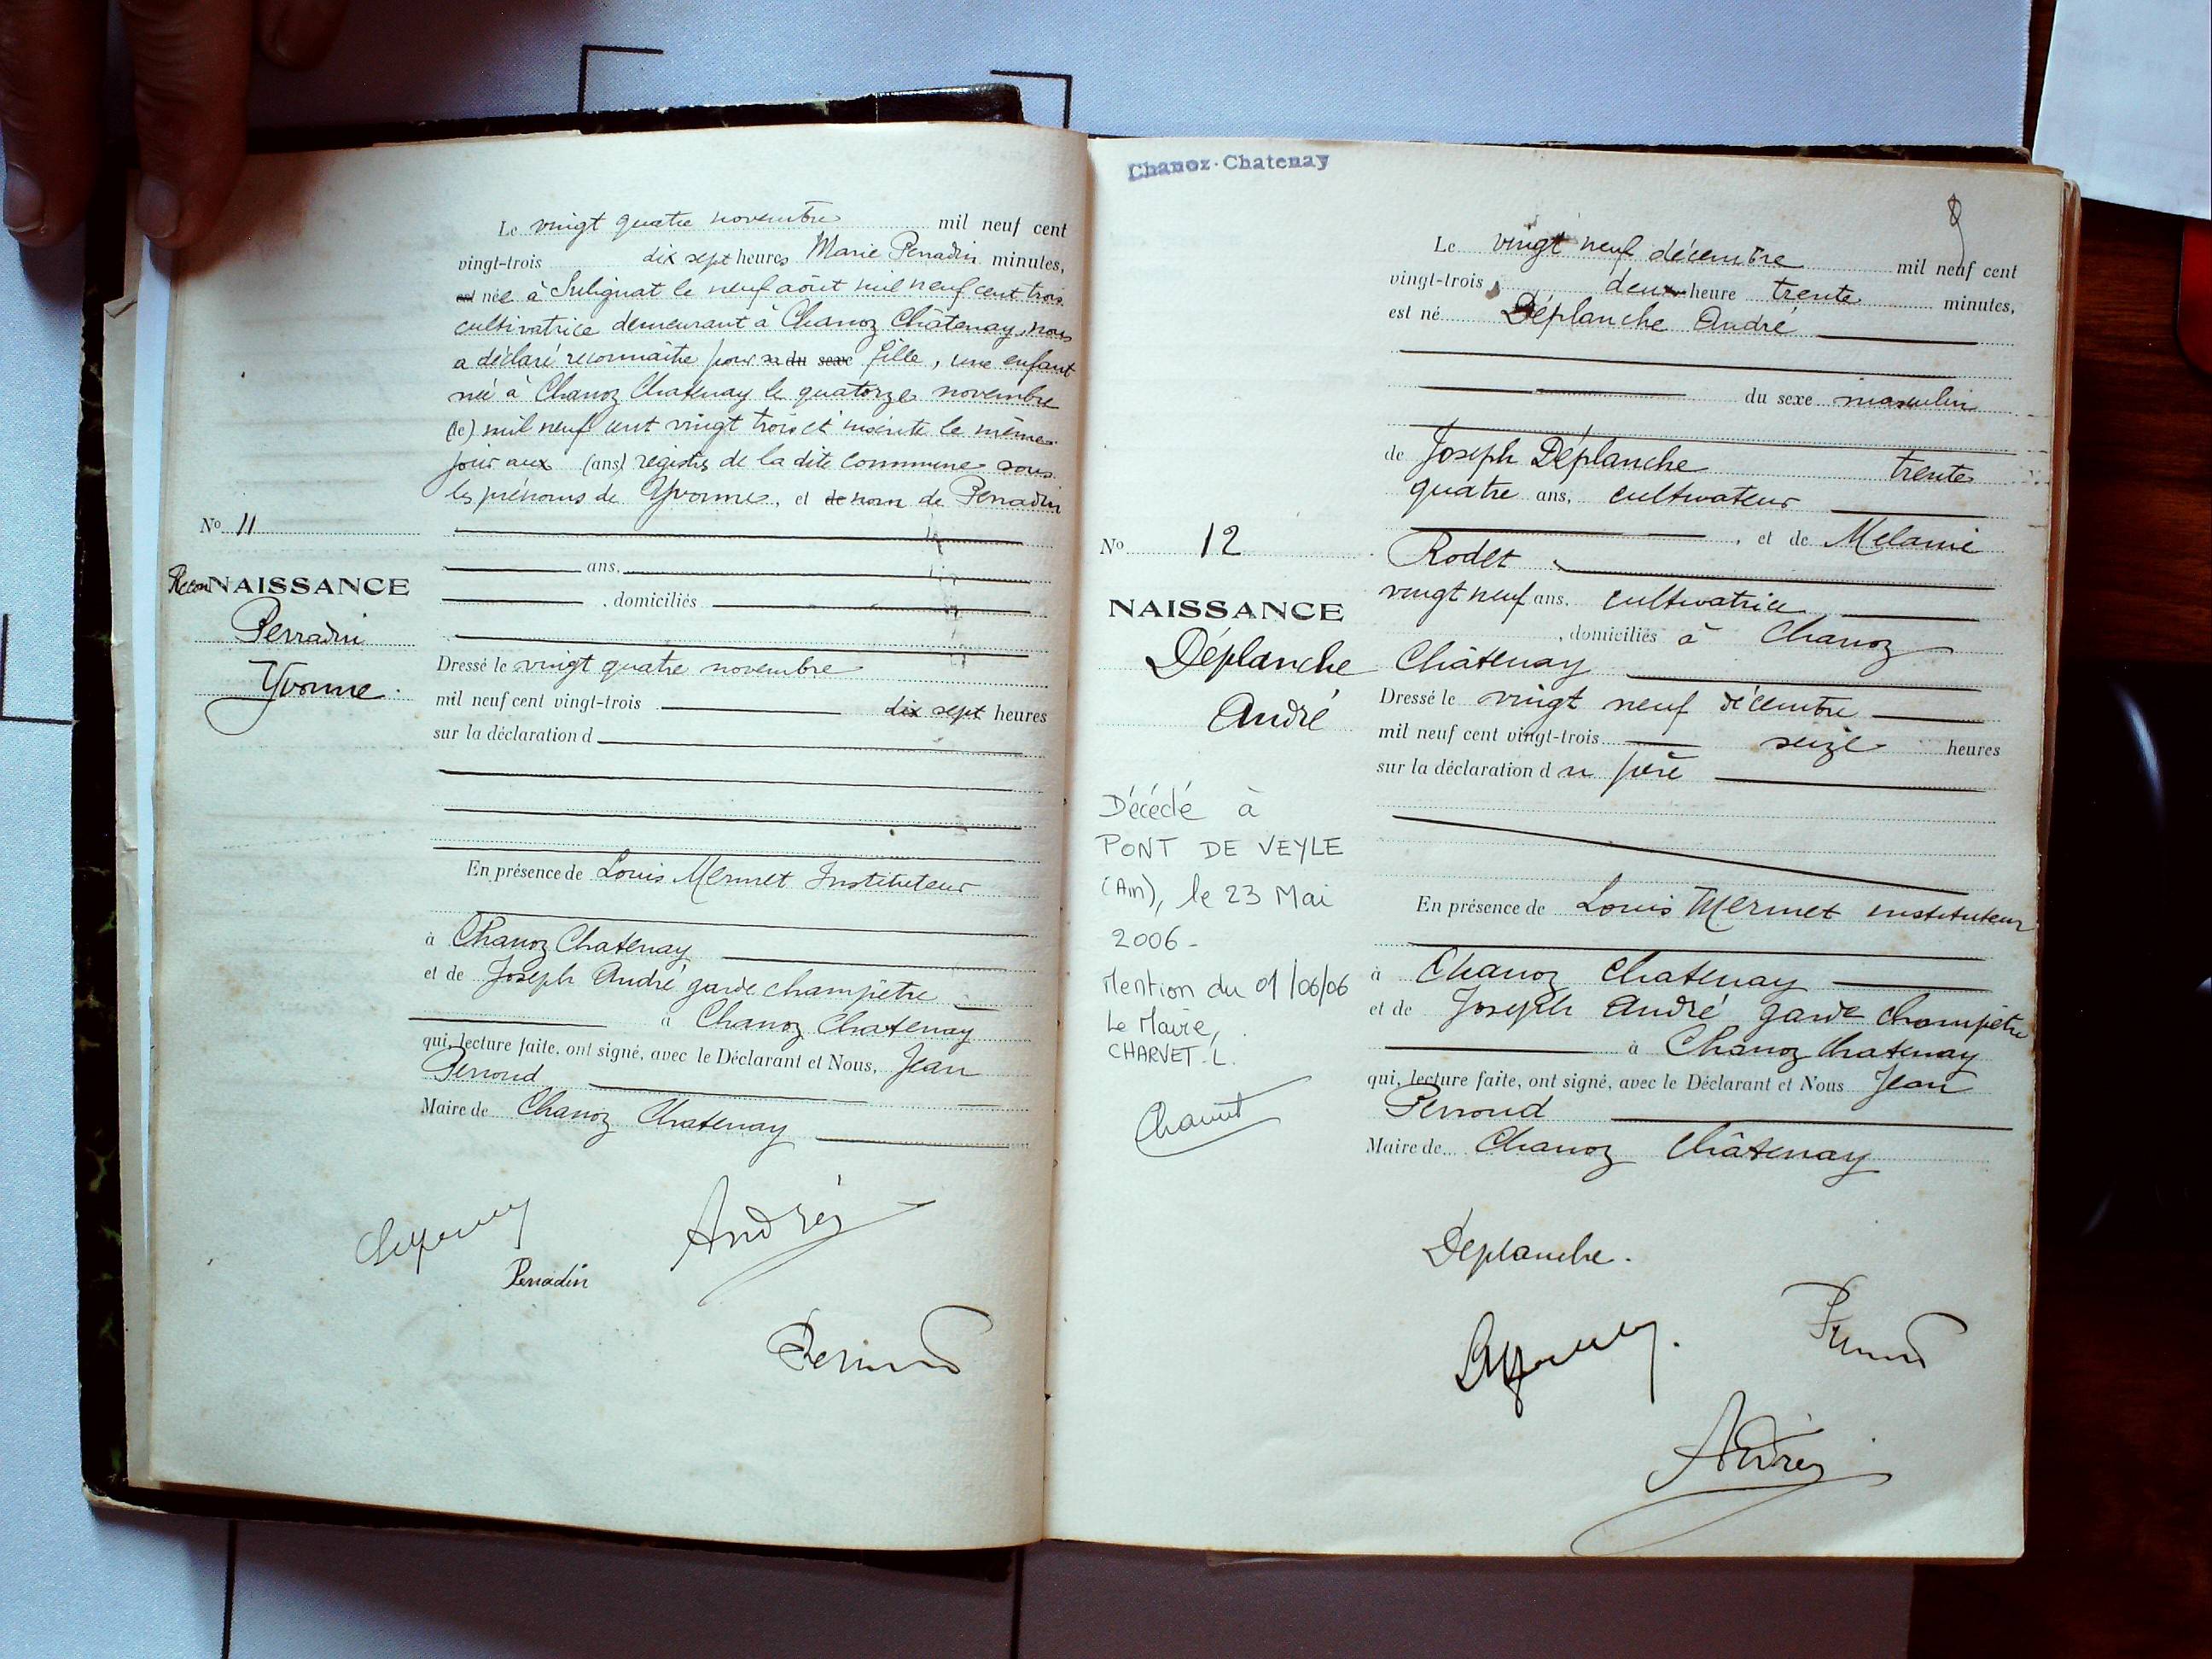 Le vingt quatre novembre mil neuf cent
vingt-trois dix sept heures Marie Perradin minutes,
est née à Sulignat le neuf août mil neuf cent trois
cultivatrice demeurant à Chanoz Châtenay, nous
a déclaré reconnaître pour sa du sexe fille, une enfant
née à Chanoz Chatenay le quatorze novembre
(de) mil neuf cent vingt trois et inscrite le même
jour aux (ans) registres de la dite commune sous
les prénoms de Yvonne, et de nom de Perradin
No 11
ans,
ReconNAISSANCE
, domiciliés
Perradin
Yvonne.
Dressé le vingt quatre novembre
mil neuf cent vingt-trois dix sept heures
sur la déclaration d
En présence de Louis Mermet Instituteur
à Chanoz Chatenay
et de Joseph André garde champêtre
à Chanoz Chatenay
qui, lecture faite, ont signé, avec le Déclarant et Nous, Jean
Perroud
Maire de Chanoz Chatenay
André
Perradin
Perroud
Chanoz-Chatenay
9
Le vingt neuf décembre mil neuf cent
vingt-trois, deux heure trente minutes,
est né Déplanche André
du sexe masculin
de Joseph Déplanche trente
quatre ans, cultivateur
No 12
, et de Melanie
Rodet
NAISSANCE
vingt neuf ans, cultivatrice
, domiciliés à Chanoz
Déplanche
André
Châtenay
Dressé le vingt neuf décembre
mil neuf cent vingt-trois seize heures
sur la déclaration du père
Décédé à
PONT DE VEYLE
(Ain), le 23 Mai
2006-
Mention du 01/06/06
Le Maire,
CHARVET.L.
Charvet
En présence de Louis Mermet instituteur
à Chanoz Chatenay
et de Joseph André garde champêtre
à Chanoz Chatenay
qui, lecture faite, ont signé, avec le Déclarant et Nous Jean
Perroud
Maire de Chanoz Châtenay
Déplanche.
Perroud
André